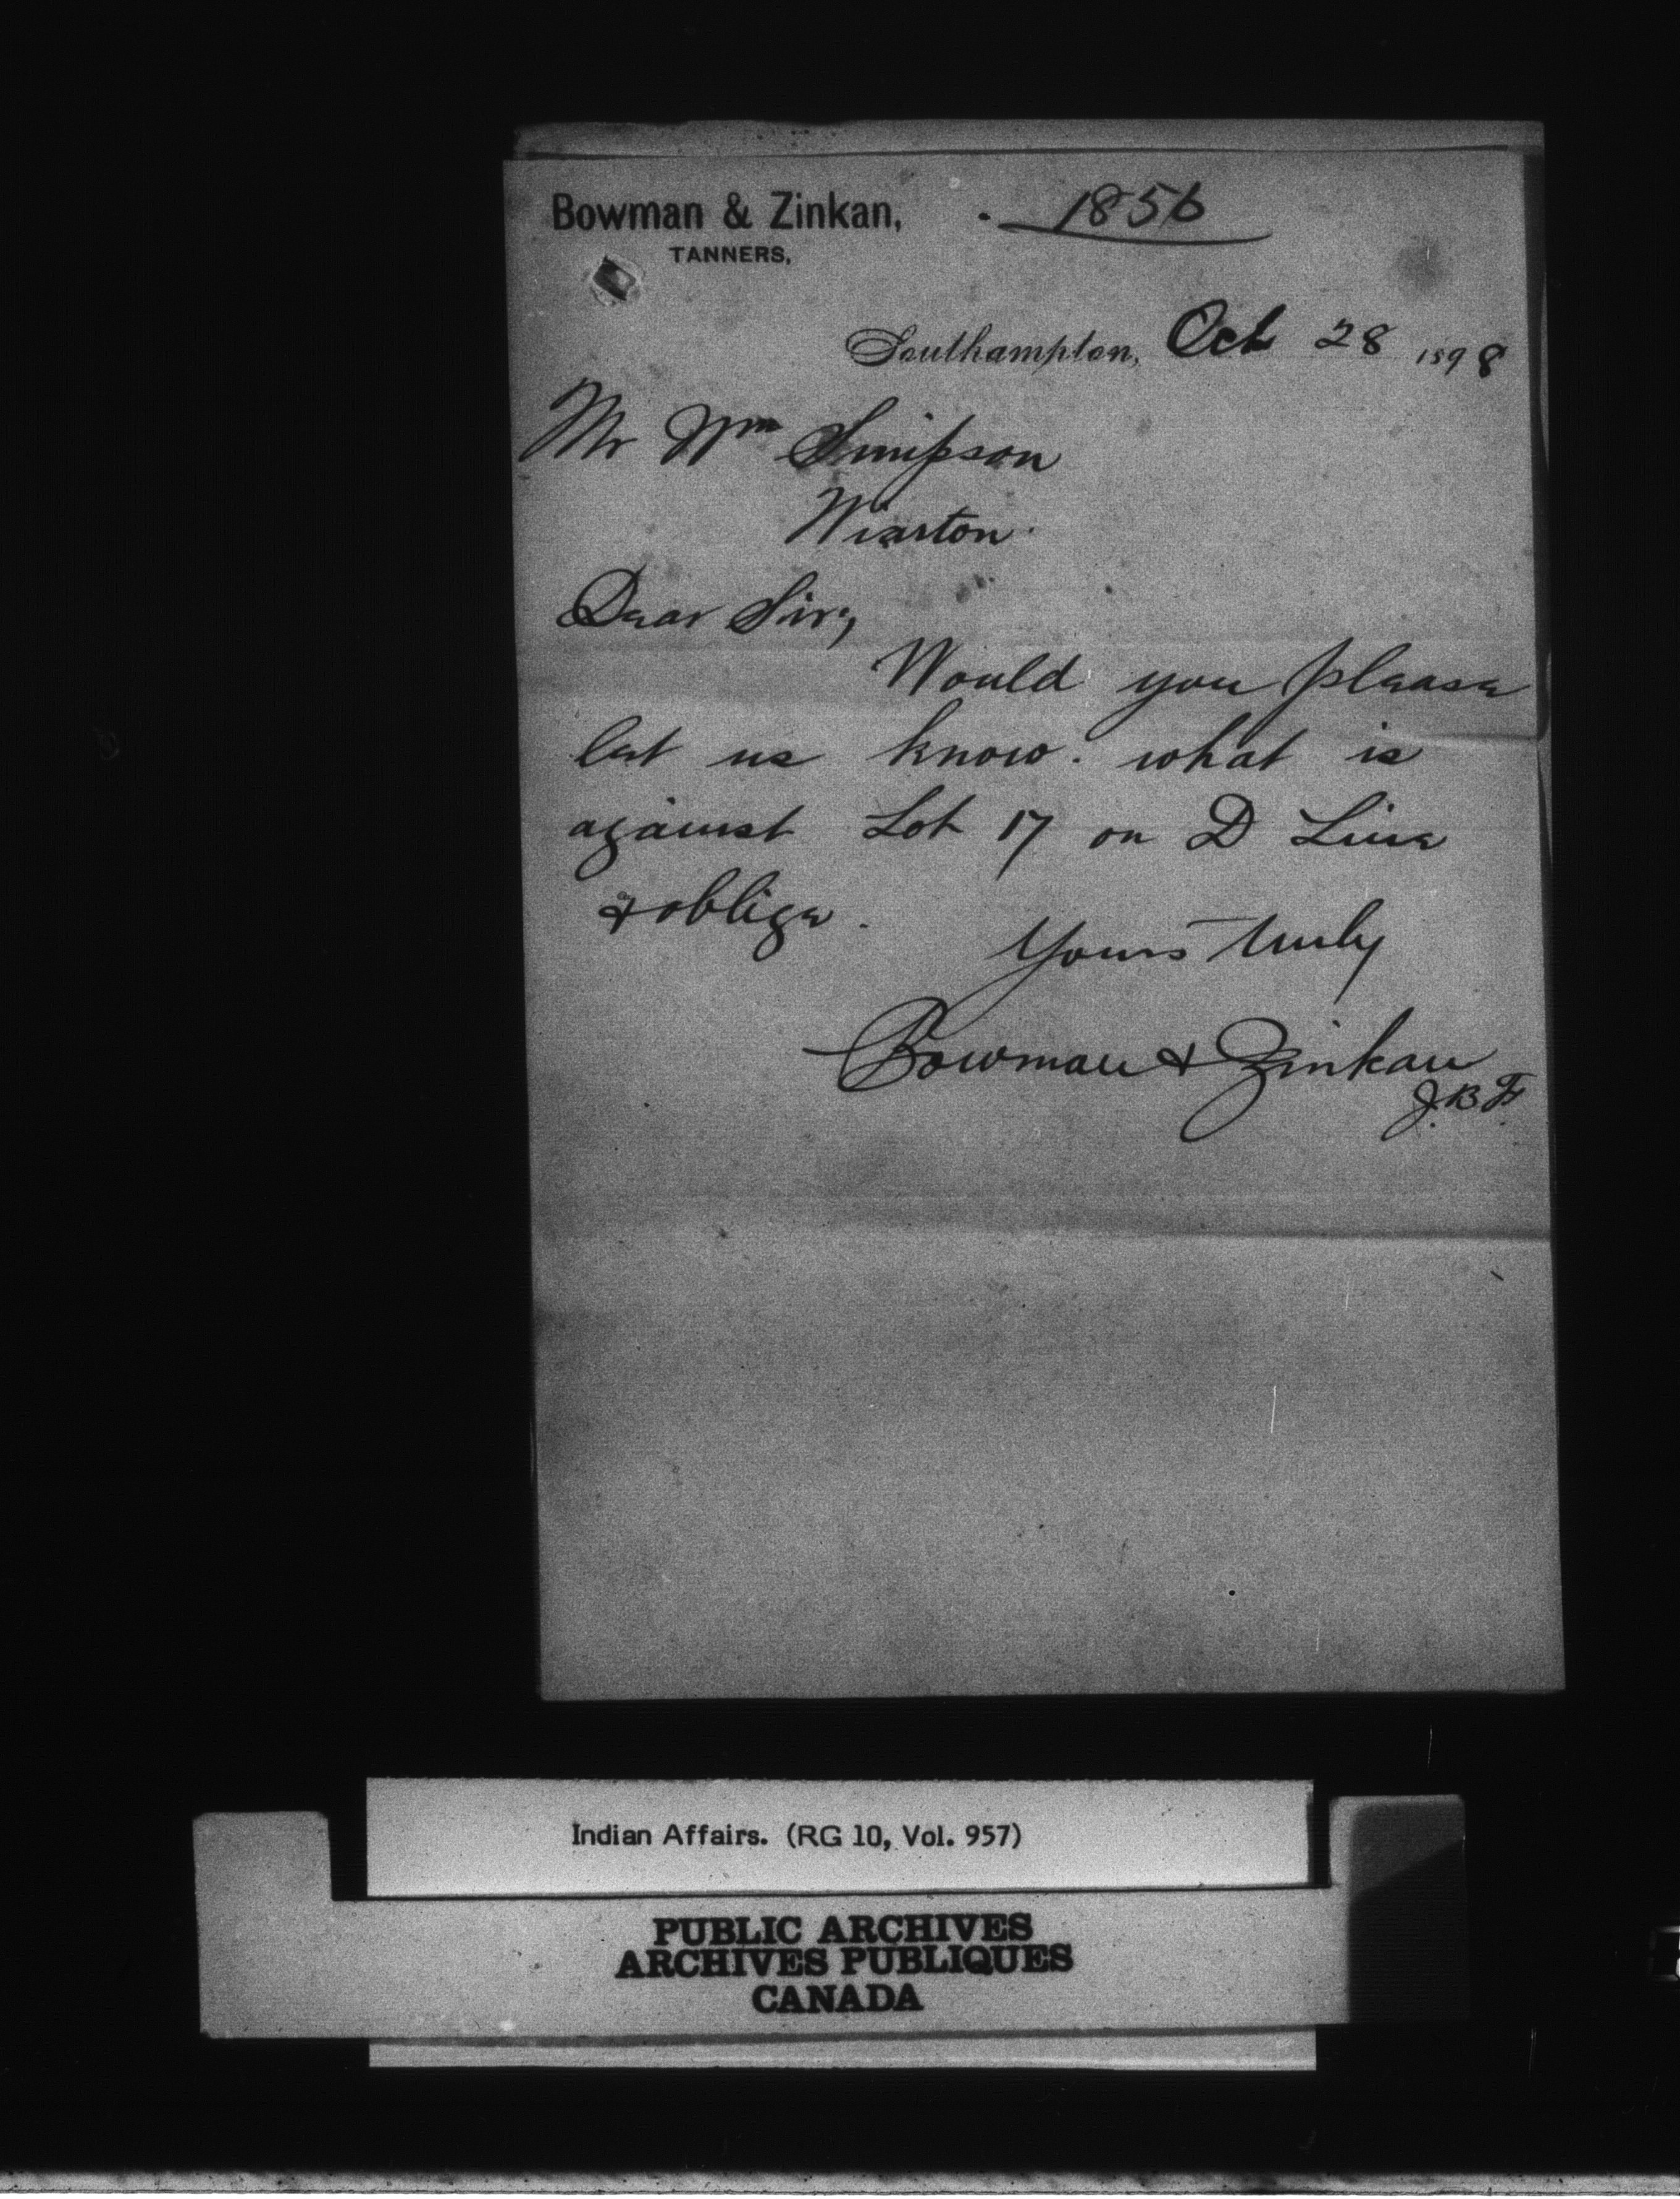 Bowman & Zinkan,
TANNERS,
1856
Southampton, Oct 28 1898
Mr Wm Simpson
Wiarton.
Dear Sir;
Would you please
let us know. what is
against Lot 17 on D Line
& oblige.
Yours truly
Bowman & Zinkan
J.B.F.
Indian Affairs. (RG 10, Vol. 957)
PUBLIC ARCHIVES
ARCHIVES PUBLIQUES
CANADA